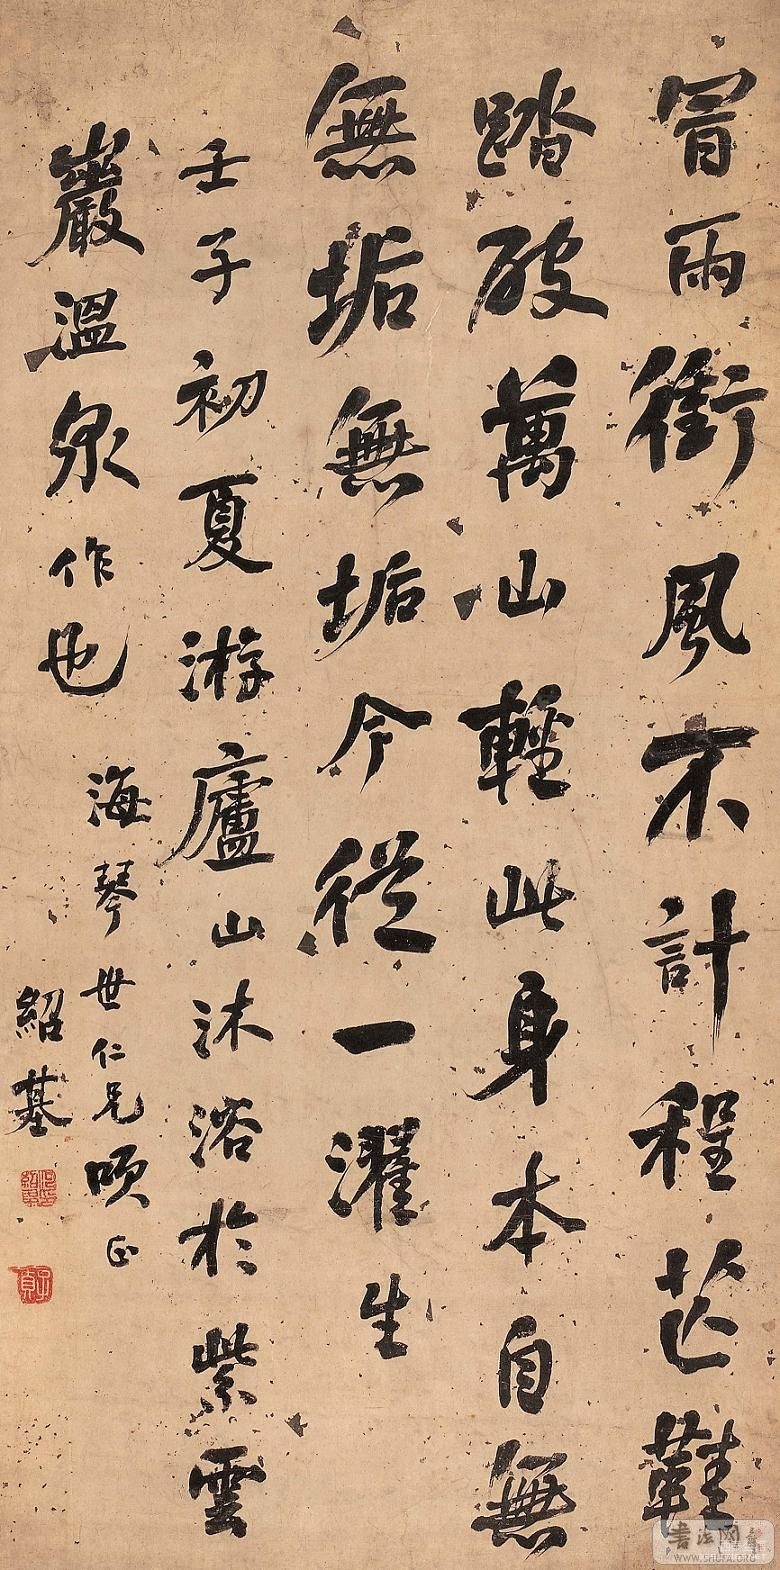 冒雨衝風不計程芒鞵
踏破萬山輕此身本自無
無垢無垢今從一濯生
壬子初夏游廬山沐浴於紫雲
巖溫泉作也
海琴世仁兄吷正
紹基
書法网
WWW.SHUFA.ORG